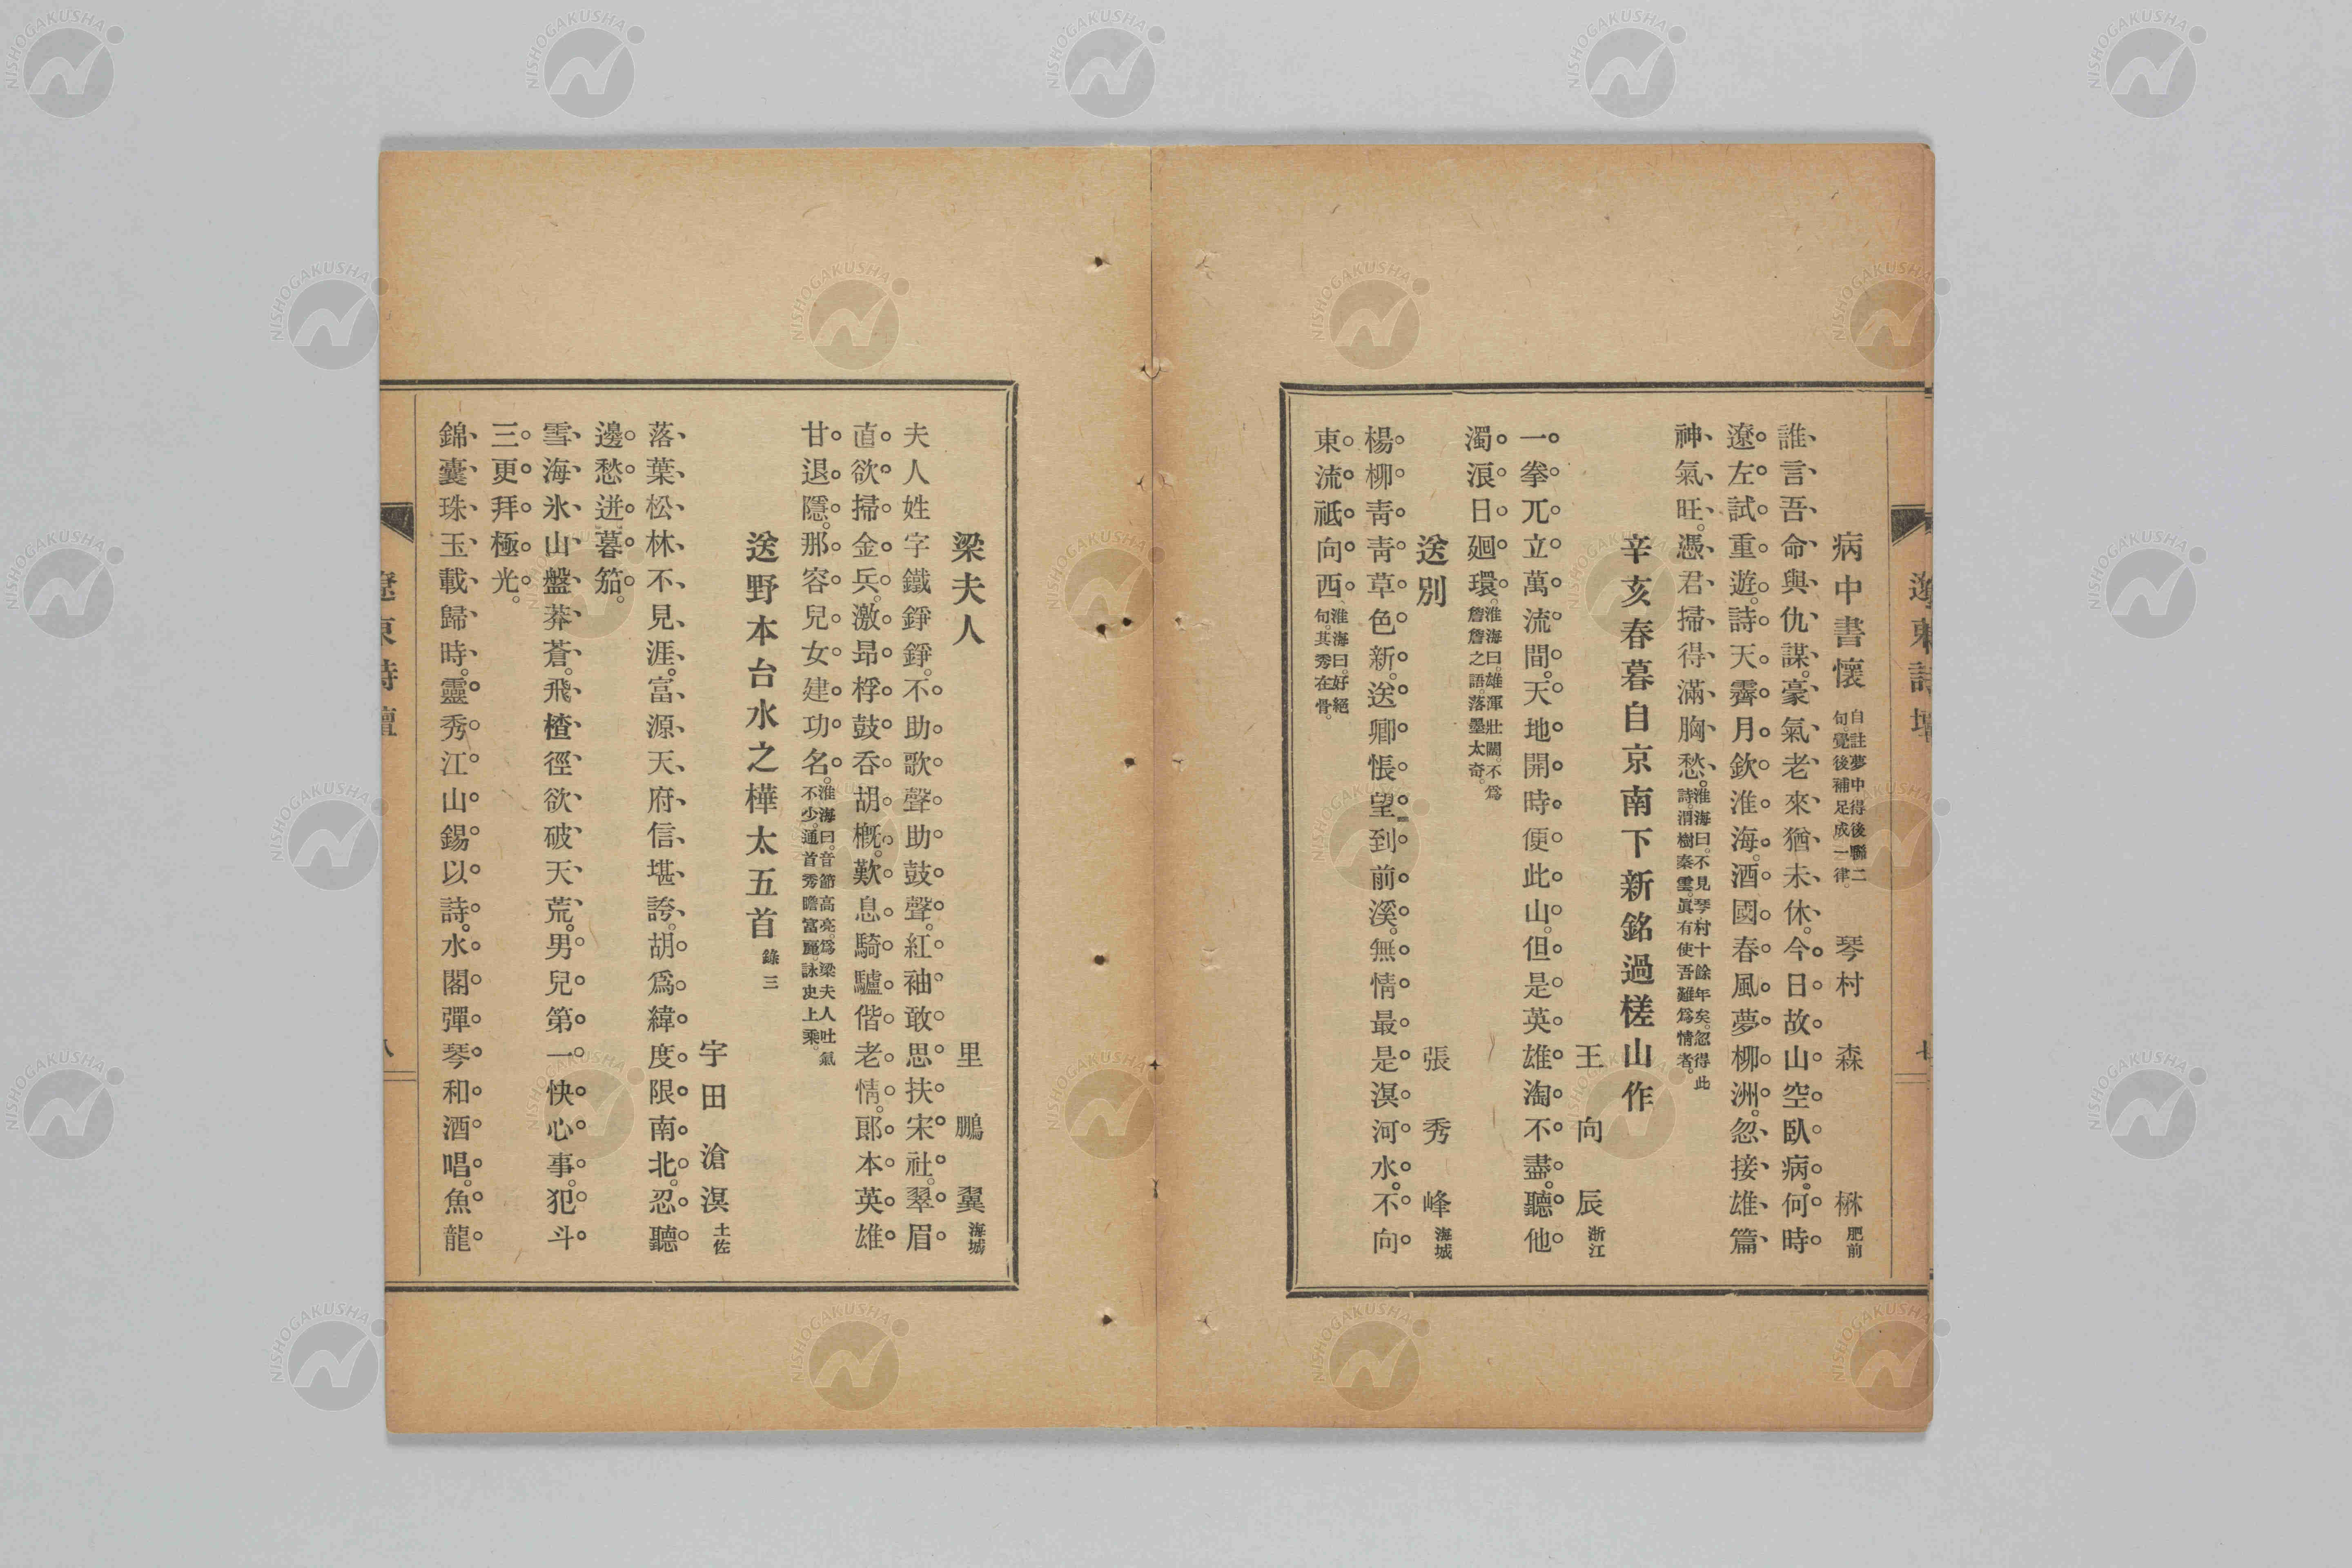 遼東詩壇
病中書懷 自註夢中得後聯二句。覺後補足成一律。 琴村 森 楙 肥前
誰言吾命與仇謀。豪氣老來猶未休。今日故山空臥病。何時
遼左試重遊。詩天霽月欽淮海。酒國春風夢柳洲。忽接雄篇
神氣旺。憑君掃得滿胸愁。淮海曰。不見琴村十餘年矣。忽得此詩。渭樹秦雲。眞有使吾難爲情者。
辛亥春暮自京南下新銘過槎山作
王向辰 浙江
一拳兀立萬流間。天地開時便此山。但是英雄淘不盡。聽他
濁浪日廻環。淮海曰。雄渾壯闊。不爲詹詹之語。落墨太奇。
送別 張秀峰 海城
楊柳靑靑草色新。送卿悵望到前溪。無情最是溟河水。不向
東流祗向西。淮海曰。好絕句。其秀在骨。
梁夫人 里鵬翼 海城
夫人姓字鐵錚錚。不助歌聲助鼓聲。紅袖敢思扶宋社。翠眉
直欲掃金兵。激昂桴鼓吞胡槪。歎息騎驢偕老情。郞本英雄
甘退隱。那容兒女建功名。淮海曰。音節高亮。爲梁夫人吐氣不少。通首秀瞻富麗。詠史上乘。
送野本台水之樺太五首 錄三
宇田滄溟 土佐
落葉松林不見涯。富源天府信堪誇。胡爲緯度限南北。忍聽
邊愁迸暮笳。
雪海氷山盤莽蒼。飛楂徑欲破天荒。男兒第一快心事。犯斗
三更拜極光。
錦囊珠玉載歸時。靈秀江山錫以詩。水閣彈琴和酒唱。魚龍
遼東詩壇
八